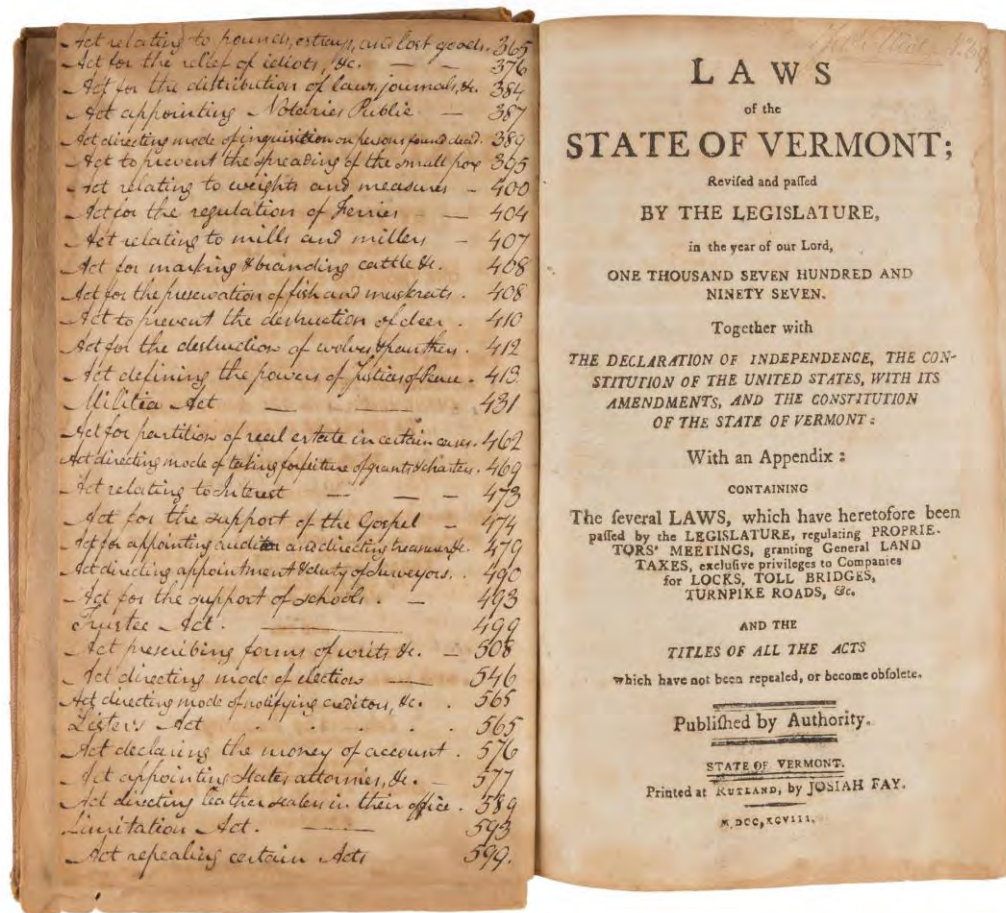 Act relating to pounds, estrays, and lost goods. 365
Act for the relief of idiots, &c. — — 376
Act for the distribution of laws, journals, &c. 384
Act appointing Notaries Public — 387
Act directing mode of inquisition on persons found dead. 389
Act to prevent the spreading of the small pox 395
Act relating to weights and measures — 400
Act for the regulation of Ferries — 404
Act relating to mills and millers — 407
Act for marking & branding cattle &c. 408
Act for the preservation of fish and muskrats. 408
Act to prevent the destruction of deer. 410
Act for the destruction of wolves & panthers. 412
Act defining the powers of Justices of Peace. 413.
Militia Act — — 431
Act for partition of real estate in certain cases. 462
Act directing mode of taking forfeiture of grants & charters. 469
Act relating to Interest — — — 473
Act for the support of the Gospel — 474
Act for appointing auditor and directing treasurer &c. 479
Act directing appointment & duty of Surveyors. . 490
Act for the support of schools. — 493
Trustee Act. — 499
Act prescribing forms of writs &c. — 508
Act directing mode of election — 546
Act directing mode of notifying creditors, &c. . 565
Lister's Act . . . . . 565
Act declaring the money of account. 576
Act appointing States attornies, &c. — 577
Act directing leather sealers in their office. 589
Limitation Act. — 593
Act repealing certain Acts 599.
LAWS
of the
STATE OF VERMONT;
Reviſed and paſſed
BY THE LEGISLATURE,
in the year of our Lord,
ONE THOUSAND SEVEN HUNDRED AND
NINETY SEVEN.
Together with
THE DECLARATION OF INDEPENDENCE, THE CON-
STITUTION OF THE UNITED STATES, WITH ITS
AMENDMENTS, AND THE CONSTITUTION
OF THE STATE OF VERMONT:
With an Appendix:
CONTAINING
The ſeveral LAWS, which have heretofore been
paſſed by the LEGISLATURE, regulating PROPRIE-
TORS' MEETINGS, granting General LAND
TAXES, excluſive privileges to Companies
for LOCKS, TOLL BRIDGES,
TURNPIKE ROADS, &c.
AND THE
TITLES OF ALL THE ACTS
which have not been repealed, or become obſolete.
Publiſhed by Authority.
STATE OF VERMONT.
Printed at RUTLAND, by JOSIAH FAY.
M,DCC,XCVIII.